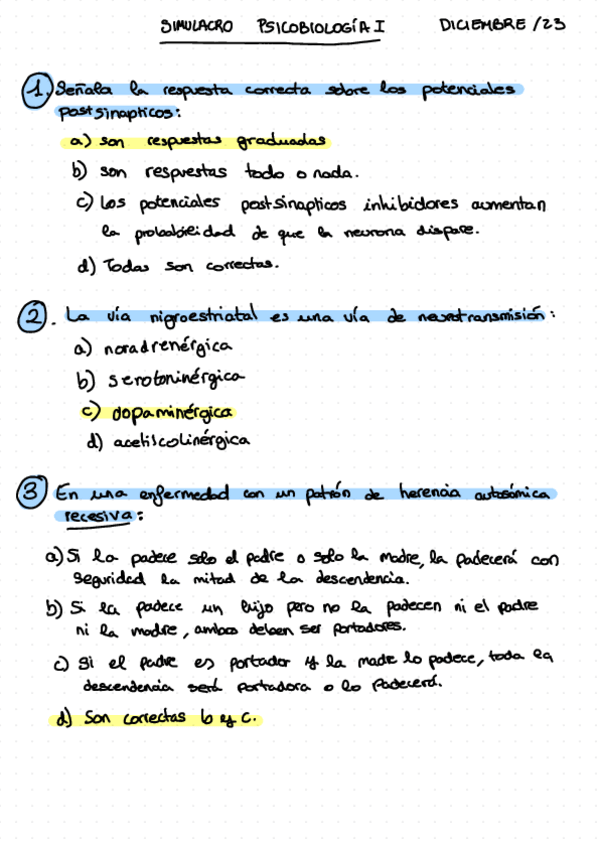 SIMULACRO PSICOBIOLOGÍA I DICIEMBRE /23
1. Señala la respuesta correcta sobre los potenciales
postsinapticos:
a) son respuestas graduadas
b) son respuestas todo o nada.
c) Los potenciales postsinapticos inhibidores aumentan
la probabilidad de que la neurona dispare.
d) Todas son correctas.
2. La vía nigroestriatal es una vía de neurotransmisión:
a) noradrenérgica
b) serotoninérgica
c) dopaminérgica
d) acetilcolinérgica
3 En una enfermedad con un patrón de herencia autosómica
recesiva:
a) Si lo padece solo el padre o solo la madre, la padecerá con
seguridad la mitad de la descendencia.
b) Si la padece un hijo pero no la padecen ni el padre
ni la madre, ambos deben ser portadores.
c) Si el padre es portador y la made lo padece, toda la
descendencia será portadora o lo padecerá.
d) Son correctas b y c.